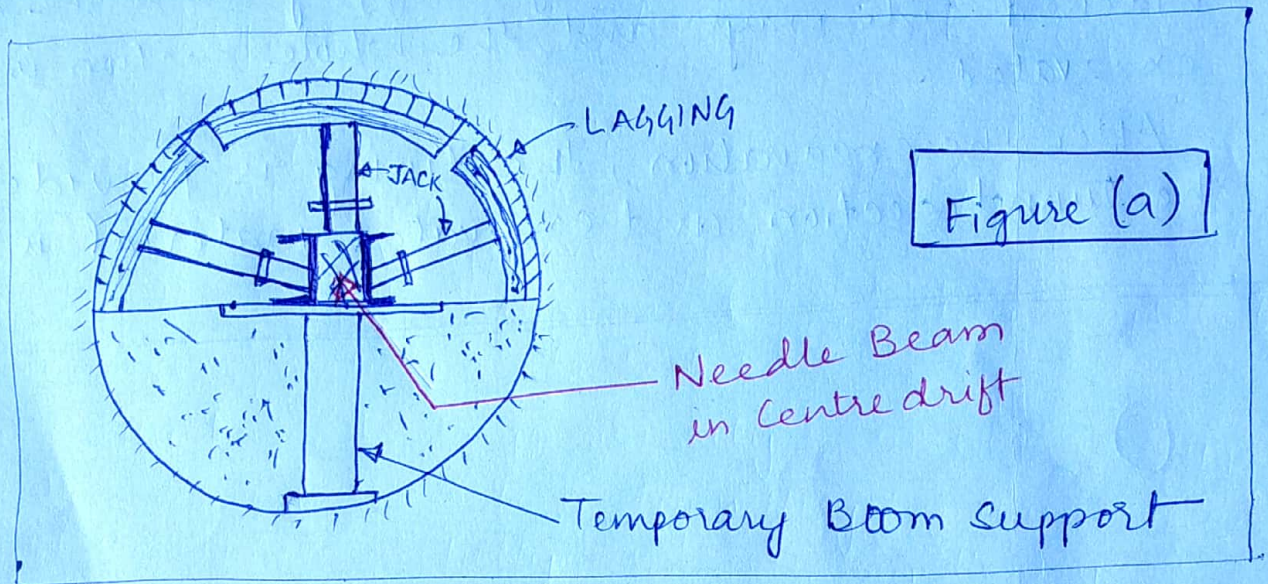 LAGGING
JACK
Figure (a)
Needle Beam
in Centre drift
Temporary Boom Support